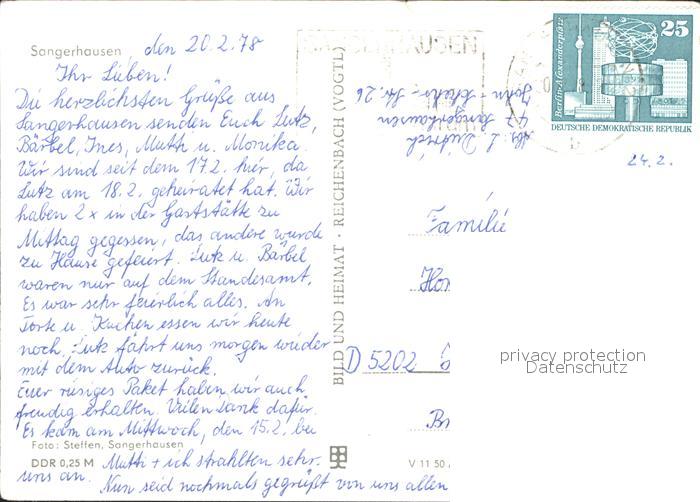 Sangerhausen, den 20.2.78
Ihr Lieben!
Die herzlichsten Grüße aus
Sangerhausen senden Euch Lutz,
Bärbel, Ines, Mutti u. Monika.
Wir sind seit dem 17.2. hier, da
Lutz am 18.2. geheiratet hat. Wir
haben 2x in der Gaststätte zu
Mittag gegessen, das andere wurde
zu Hause gefeiert. Lutz u. Bärbel
waren nur auf dem Standesamt.
Es war sehr feierlich alles. An
Torte u. Kuchen essen wir heute
noch. Lutz fährt uns morgen wieder
mit dem Auto zurück.
Euer riesiges Paket haben wir auch
freudig erhalten. Vielen Dank dafür.
Es kam am Mittwoch, den 15.2. bei
Foto: Steffen, Sangerhausen
DDR 0,25 M
uns an. Mutti + ich strahlten sehr.
Nun seid nochmals gegrüßt von uns allen
BILD UND HEIMAT · REICHENBACH (VOGTL)
V 11 50
Abs. L. Dietrich
47 Sangerhausen
John-Schehr-Str. 26
Berlin-Alexanderplatz
25
DEUTSCHE DEMOKRATISCHE REPUBLIK
24.2.
Familie
D 5202
privacy protection
Datenschutz